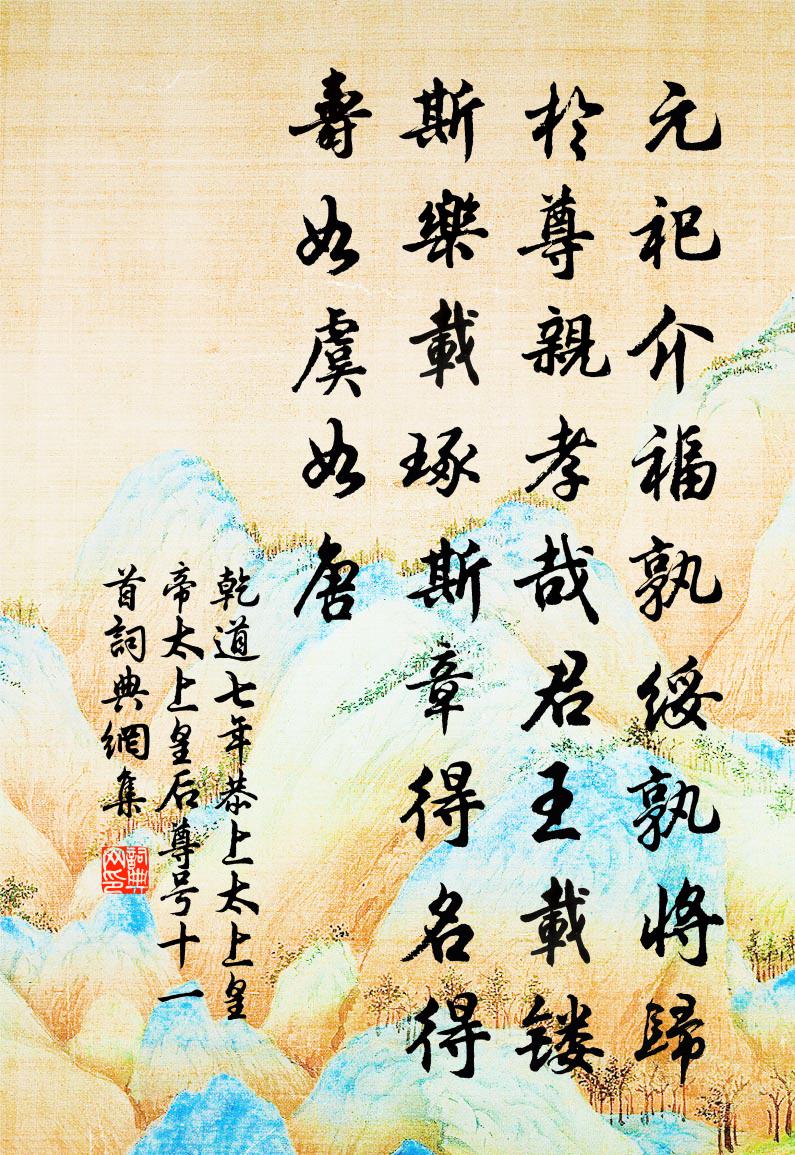 元祀介福孰綏孰將歸
於尊親孝哉君王載镂
斯樂載琢斯章得名得
壽如虞如唐
乾道七年恭上太上皇
帝太上皇后尊号十一
首詞典網集
詞典